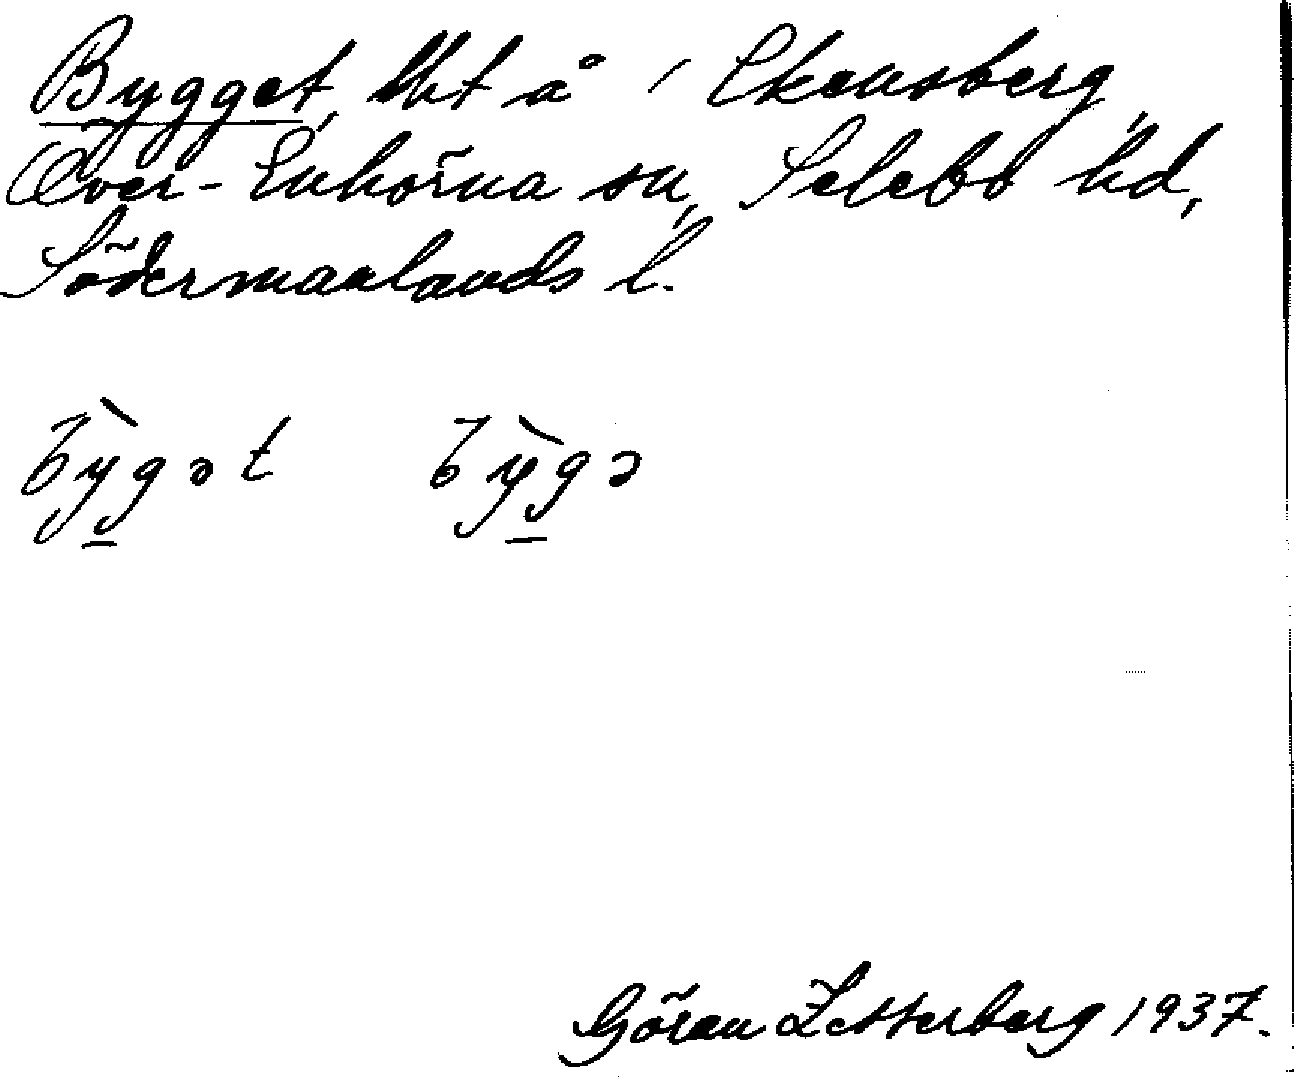 Bygget, lht å / Ekensberg,
Över-Enhörna sn, Selebo hd,
Södermanlands l.
bỳ̱gət bỳ̱gə
Göran Zetterberg 1937.